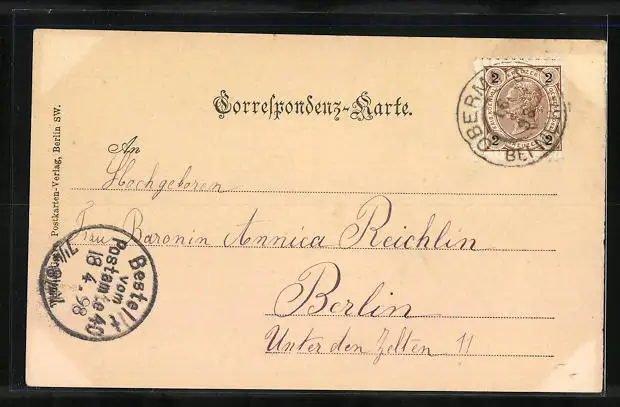 Correspondenz-Karte.
An
Hochgeboren
Frau Baronin Annica Reichlin
Berlin
Unter den Zelten 11
Postkarten-Verlag, Berlin SW.
2 2
2 2
OBERM
BEI
Bestellt
vom
Postamte 40
18 4 98